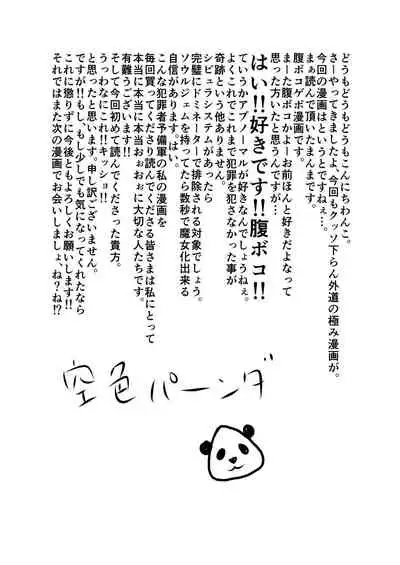 どうもどうもどうもこんにちわんこ。
さーやってきましたよ、今回もクッソ下らん外道の極み漫画が。
今回の漫画はというとですねぇ、
まぁ読んで頂いたまんまです。
腹ボコゲボ漫画です。
まーた腹ボコかよーお前ほんと好きだよなって
思った方いたと思うんですが…
はい!!好きです!!腹ボコ!!
ていうかアブノーマルが好きなんでしょうねぇ。
よくこれでこれまで犯罪を犯さなかった事が
奇跡という他ありません。
シビュラシステムがあったら
完璧にドミネーターで排除される対象でしょう。
ソウルジェムを持ってたら数秒で魔女化出来る
自信があります。はい。
こんな犯罪者予備軍の私の漫画を
毎回買ってくださり読んでくださる皆さまは私にとって
本当に本当に本当おぉおぉに大切な人たちです。
有難うございます!!
そして今回初めて読んでくださった貴方。
うっわなにこれ!!キッショ!!
と思ったと思います。申し訳ございません。
ですが!!もし、もし少しでも気になってくれたなら
これに懲りずに今後ともよろしくお願いします!!
それではまた次の漫画でお会いしましょ、ね?ね!?
空色パーンダ